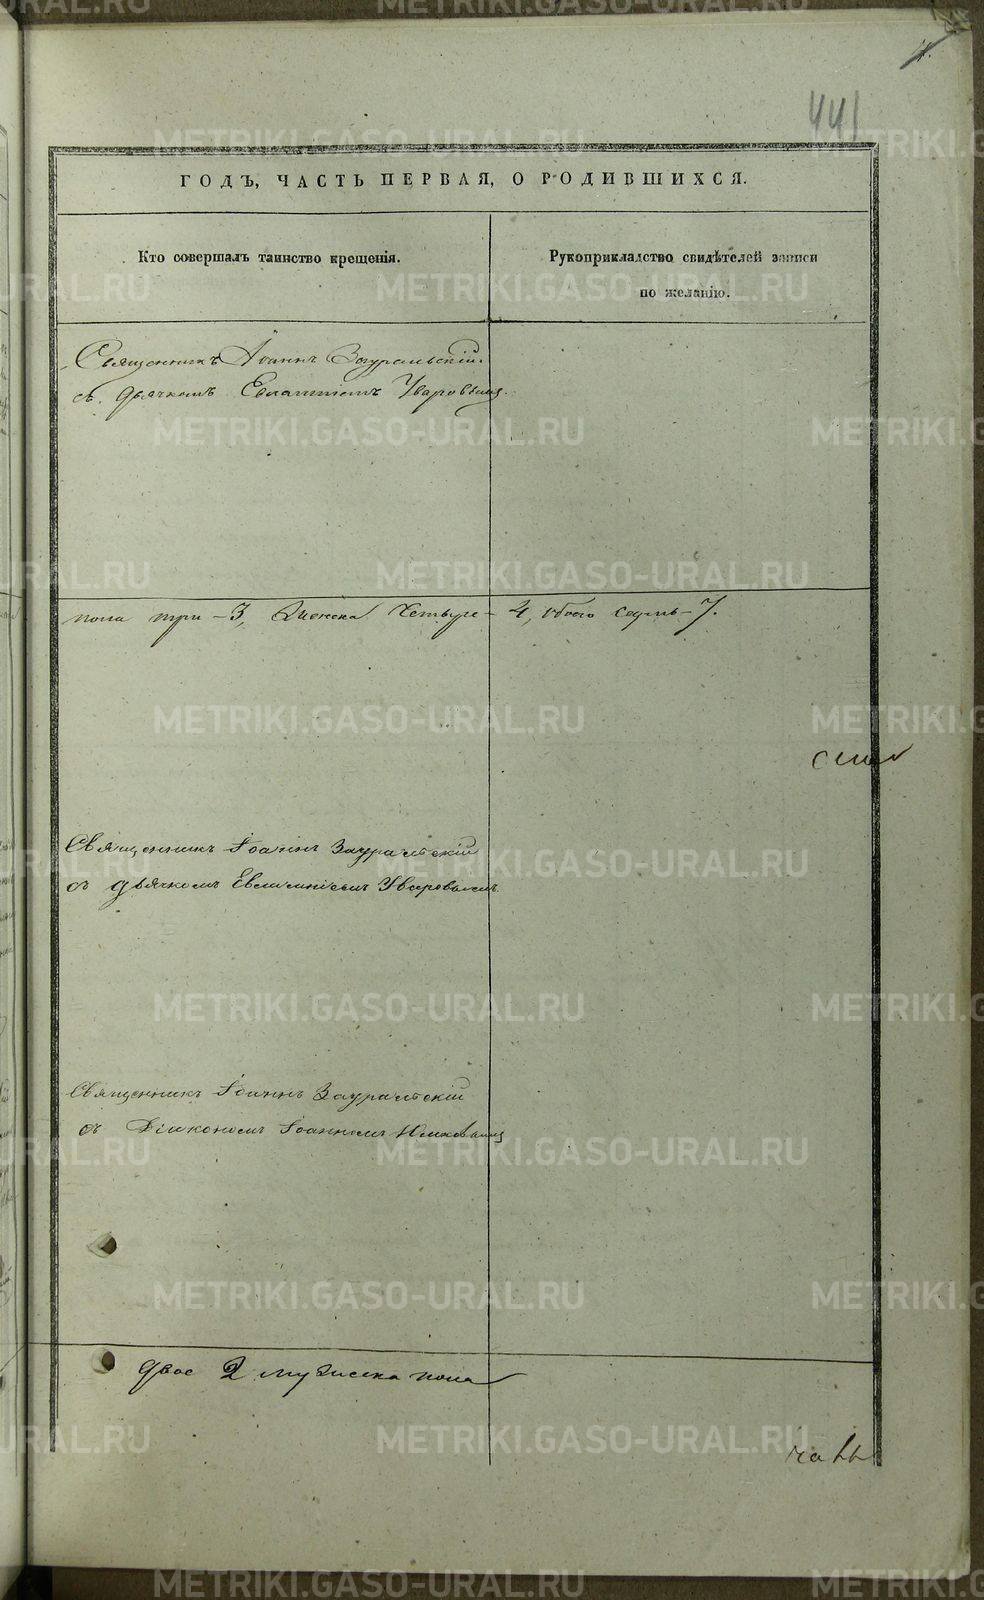 441
ГОДЪ, ЧАСТЬ ПЕРВАЯ, О РОДИВШИХСЯ.
Кто совершалъ таинство крещенія.
Рукоприкладство свидѣтелей записи
по желанію.
Священникъ Іоаннъ Зауральскій
съ дьячкомъ Евлампіемъ Уваровымъ.
пола три – 3, Женска Четыре – 4, обоего седмь – 7.
Священникъ Іоаннъ Зауральскій
съ дьячкомъ Евлампіемъ Уваровымъ
Священникъ Іоаннъ Зауральскій
съ Діакономъ Іоанномъ
двое 2 мужеска пола
METRIKI.GASO-URAL.RU